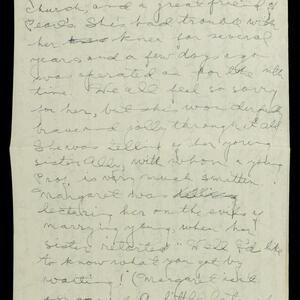 Church, and a great friend of
Pearl's. She's had trouble with
her knee for several
years and a few days ago
was operated on for the
time. We all feel so sorry
for her, but she's wonderfully
brave and jolly through it all.
She was telling of her young
sister Ally, with whom a young
Prof. is very much smitten.
Margaret was
lecturing her on the evils of
marrying young, when her
sister retorted "Well I'd like
to know what you got by
waiting"! (Margaret isn't